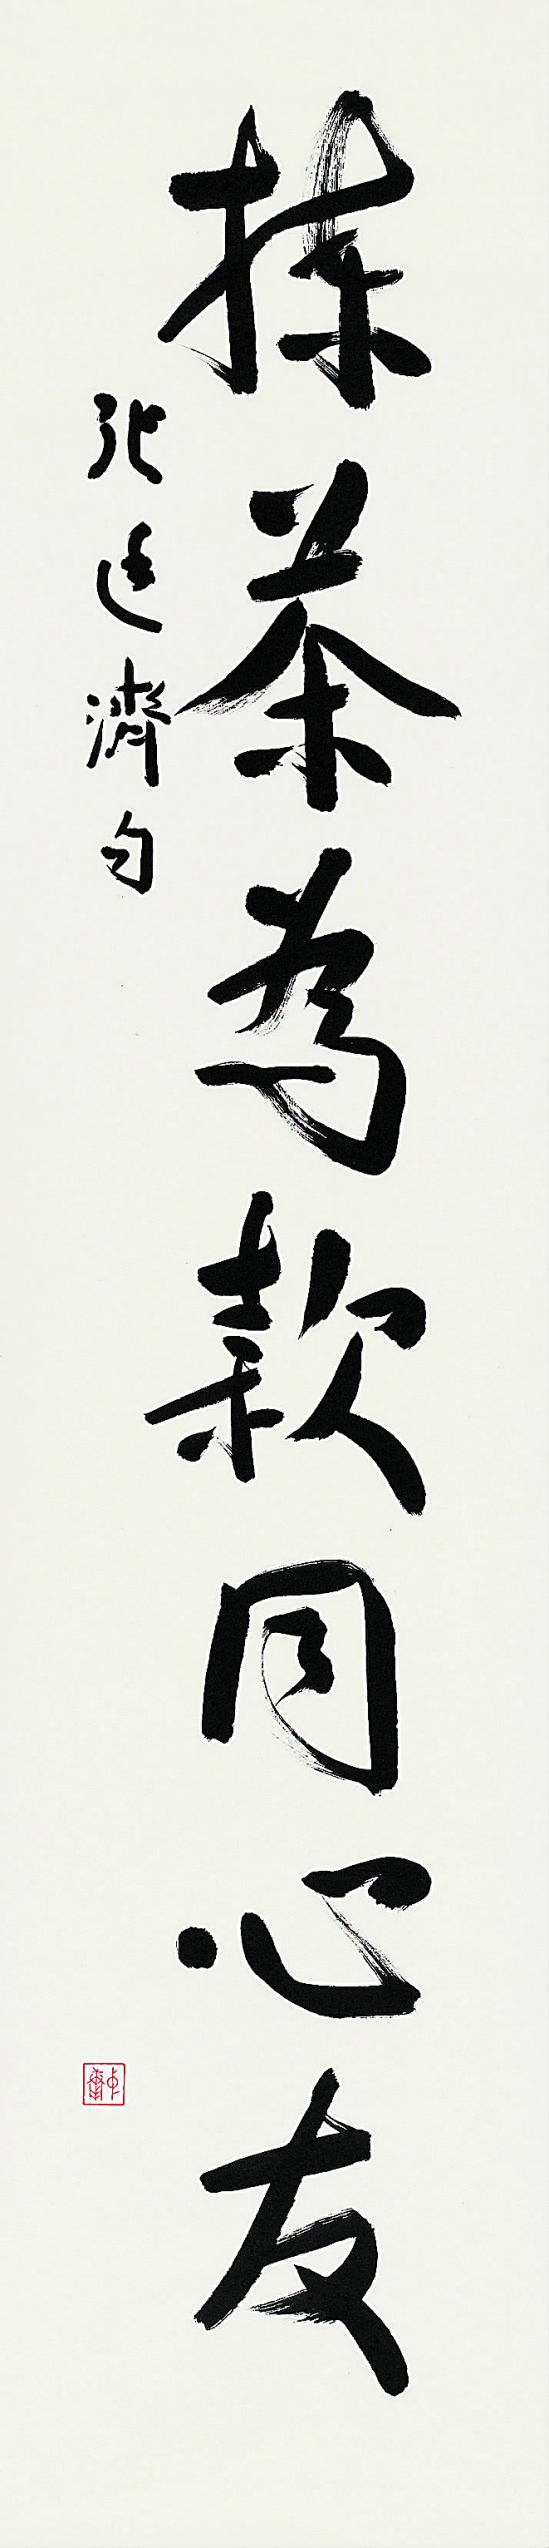 採茶為款同心友
張廷濟句